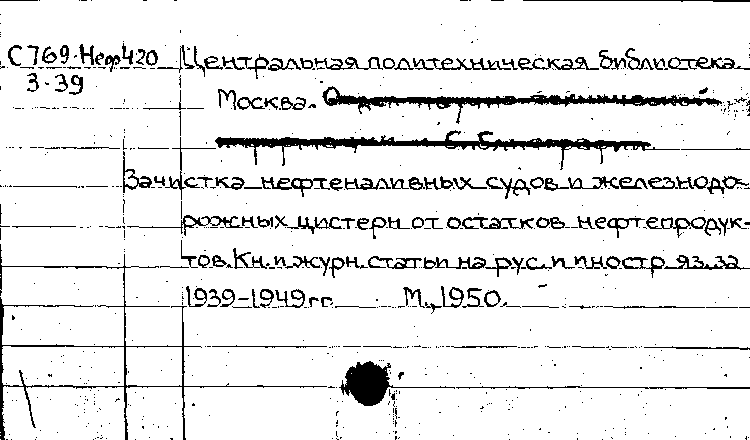 С769.Неф420 Центральная политехническая библиотека
3-39
Москва.
Зачистка нефтеналивных судов и железнодо-
рожных цистерн от остатков нефтепродук-
тов. Кн. и журн. статьи на рус. и иностр. яз. за
1939-1949гг. М., 1950.